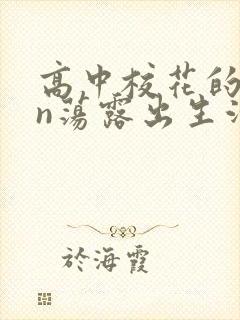 高中校花的
n荡露出生活
於海霞